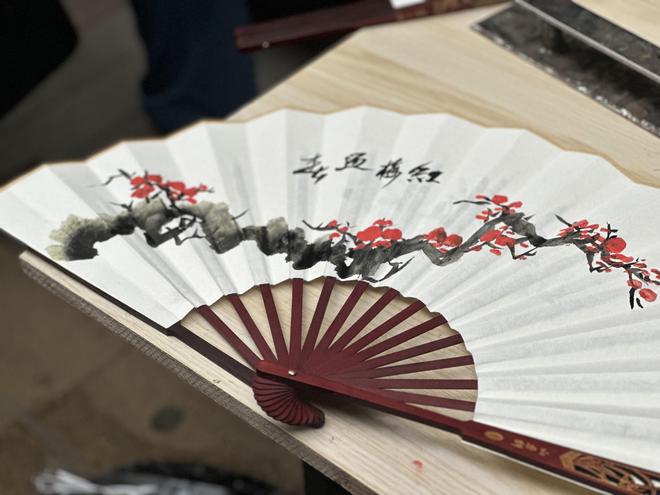 红梅迎春